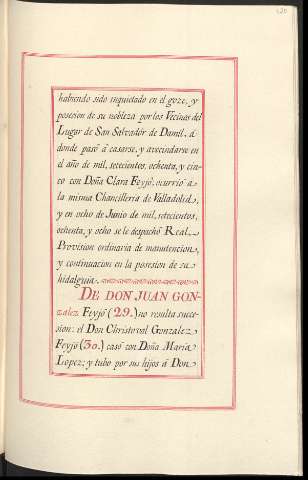 habiendo sido inquietado en el goze, y
posesion de su nobleza por los Vecinos del
Lugar de San Salvador de Damil, á
donde pasó á casarse, y avecindarse en
el año de mil, setecientos, ochenta, y cin-
co con Doña Clara Feyjó: ocurrió a
la misma Chancilleria de Valladolid,
y en ocho de Junio de mil, setecientos,
ochenta, y ocho se le despachó Real
Provision ordinaria de manutencion,
y continuacion en la posesion de su
hidalguia.
DE DON JUAN GON-
zalez Feyjó (29.) no resulta succe-
sion: el Don Christoval Gonzalez
Feyjó (30.) casó con Doña Maria
Lopez; y tubo por sus hijos á Don